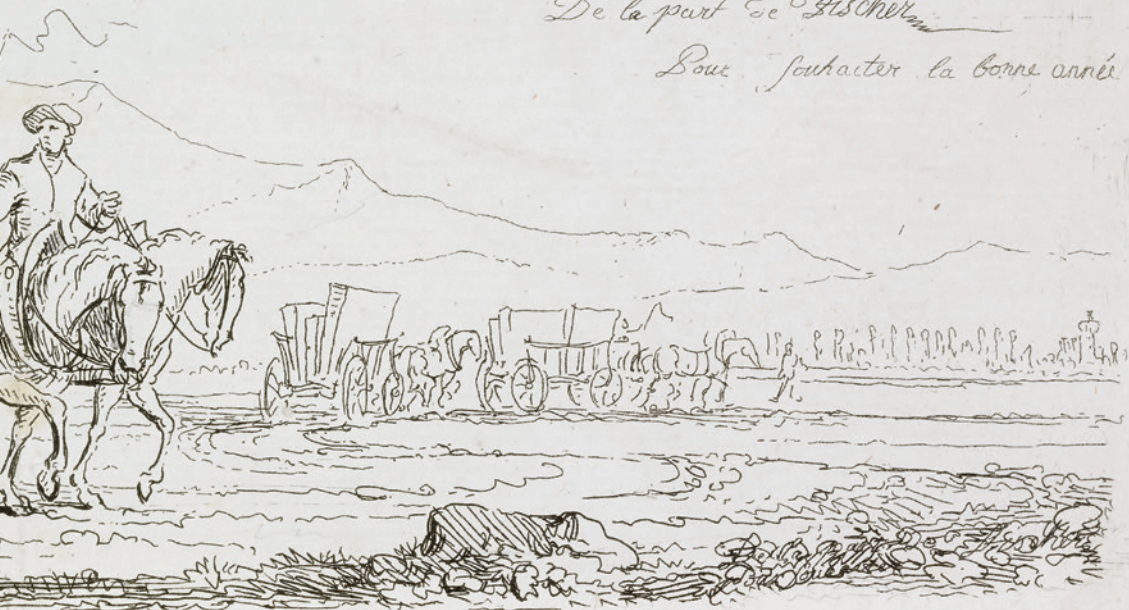 De la part de Fischer
Pour souhaiter la bonne année